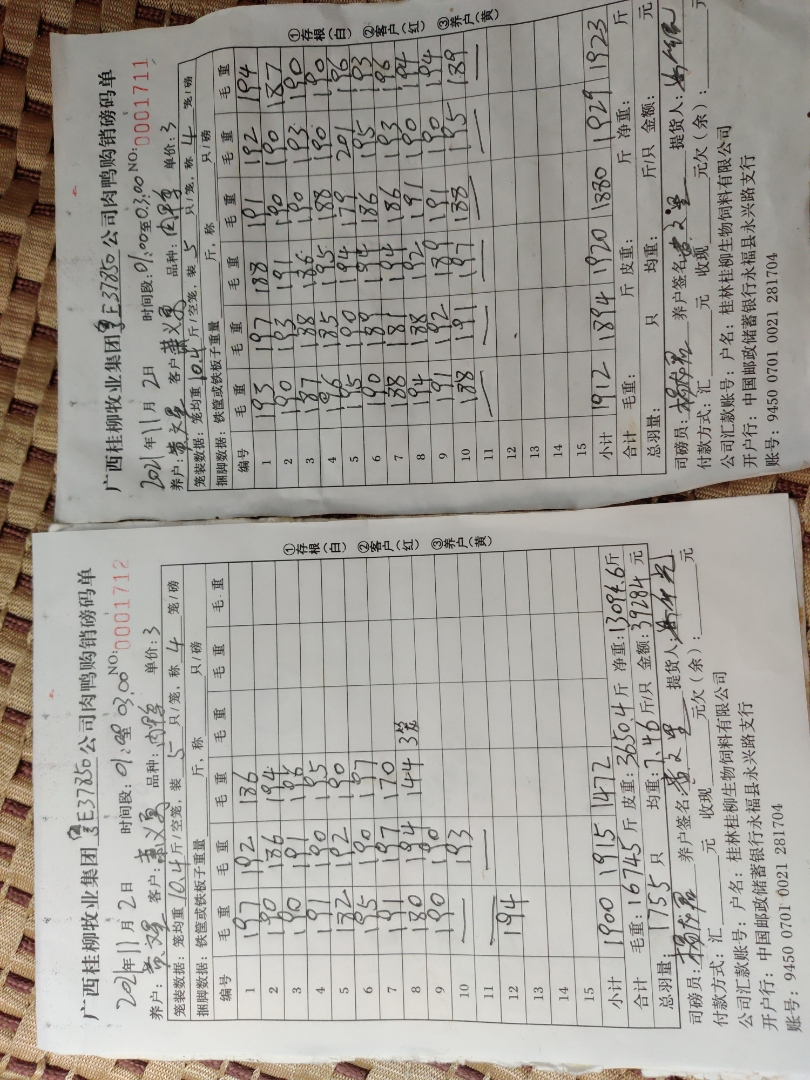 广西桂柳牧业集团 E37850 公司肉鸭购销磅码单
2021年11月2日 时间段: 01:至03.00 NO: 0001712
养户: 黄文星 客户: 品种: 单价: 3
笼装数据: 笼均重 10.4 斤/空笼, 装 5 只/笼, 称 4 笼/磅
捆脚数据: 铁筐或铁板子重量 斤, 称 只/磅
编号 毛重 毛重 毛重 毛重 毛重 毛重
1 197 192 186
2 190 186 194
3 190 191 196
4 191 190 195
5 182 192 190
6 195 190 197
7 191 197 170
8 180 194 144 3笼
9 190 190
10 — 193
11 —
12 194
13
14
15
小计 1900 1915 1472
合计 毛重: 16745 斤 皮重: 3650.4 斤 净重: 13094.6 斤
总羽量: 1755 只 均重: 7.46 斤/只 金额: 39284 元
司磅员: 养户签名: 黄文星 提货人:
付款方式: 汇 元 收现 元欠(余): 元
公司汇款账号: 户名: 桂林桂柳生物饲料有限公司
开户行: 中国邮政储蓄银行永福县永兴路支行
账号: 9450 0701 0021 281704
①存根(白) ②客户(红) ③养户(黄)
广西桂柳牧业集团 E37850 公司肉鸭购销磅码单
2021年11月2日 时间段: 01:00至03.00 NO: 0001711
养户: 黄文星 客户 品种: 单价: 3
笼装数据: 笼均重 10.4 斤/空笼, 装 5 只/笼, 称 4 笼/磅
捆脚数据: 铁筐或铁板子重量 斤, 称 只/磅
编号 毛重 毛重 毛重 毛重 毛重 毛重
1 193 197 188 191 192 194
2 190 193 191 190 190 187
3 187 188 186 190 193 190
4 196 185 195 188 190 190
5 195 190 194 179 201 196
6 190 189 194 186 195 193
7 188 181 194 186 193 196
8 194 188 192 191 190 194
9 191 192 189 191 190 194
10 188 191 197 188 195 189
11 — — — — — —
12
13
14
15
小计 1912 1894 1920 1880 1929 1923
合计 毛重: 斤 皮重: 斤 净重: 斤
总羽量: 只 均重: 斤/只 金额: 元
司磅员: 养户签名 黄文星 提货人:
付款方式: 汇 元 收现 元欠(余): 元
公司汇款账号: 户名: 桂林桂柳生物饲料有限公司
开户行: 中国邮政储蓄银行永福县永兴路支行
账号: 9450 0701 0021 281704
①存根(白) ②客户(红) ③养户(黄)